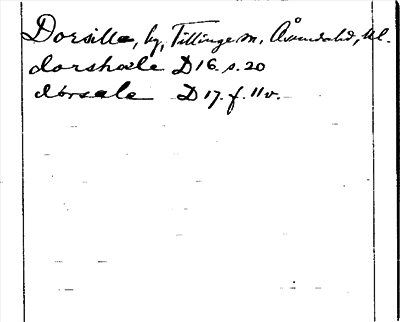 Dorsilla, by, Tillinge sn, Åsunda hd, Upl.
dorshale D16. s. 20
dorsale D 17. f. 11v.